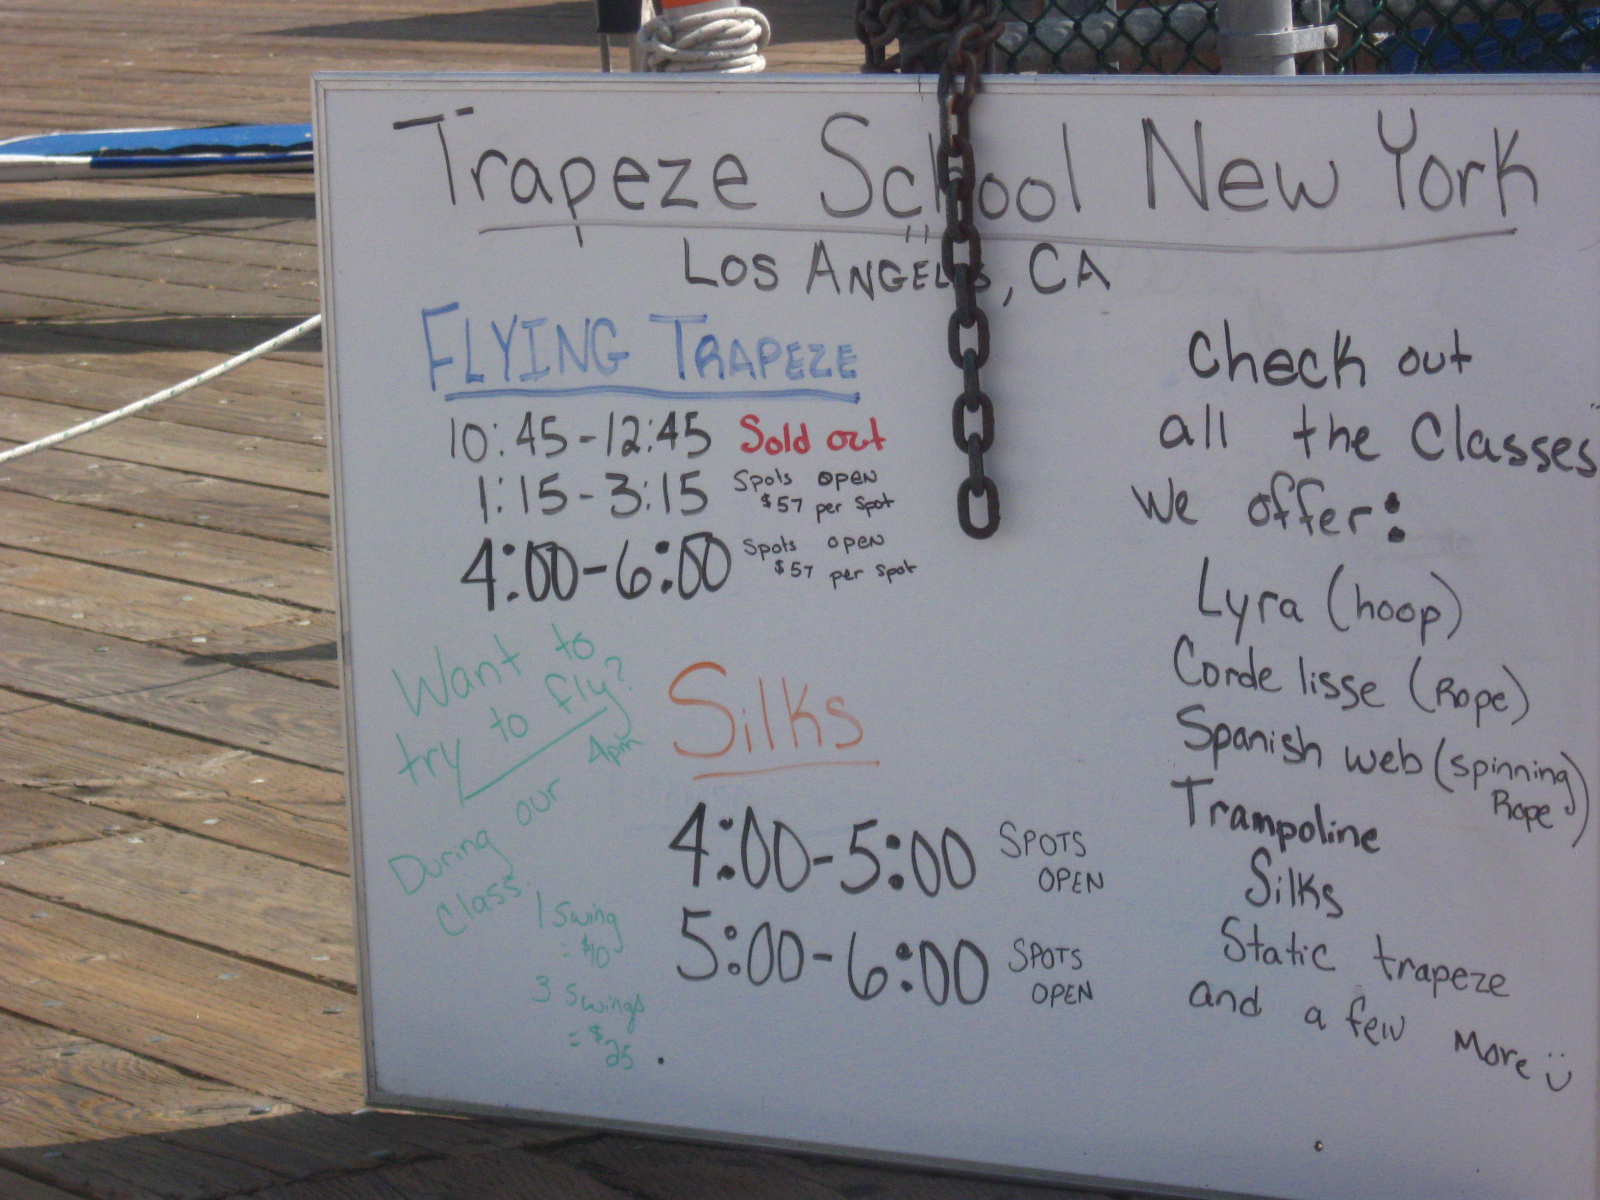 Trapeze School New York
Los Angeles, CA
FLYING TRAPEZE
10:45-12:45 Sold out
1:15-3:15 Spots open
$57 per spot
4:00-6:00 Spots open
$57 per spot
Want to
try to fly?
During our 4pm
class.
1 Swing
= $10
3 Swings
= $25
Silks
4:00-5:00 SPOTS
OPEN
5:00-6:00 SPOTS
OPEN
Check out
all the Classes
we offer:
Lyra (hoop)
Corde lisse (Rope)
Spanish web (spinning
Rope)
Trampoline
Silks
Static trapeze
and a few more